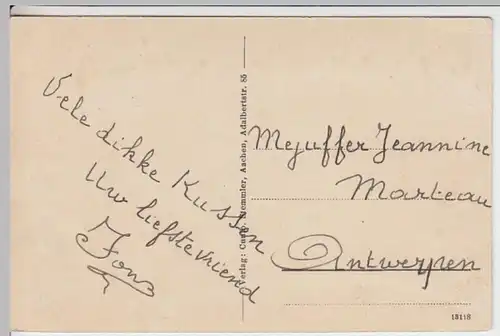 Vele dikke Kussen
Uw liefstevriend
Fons
Verlag: Hemmler, Aachen, Adalbertstr. 85
Mejuffer Jeannine
Marteau
Antwerpen
13118